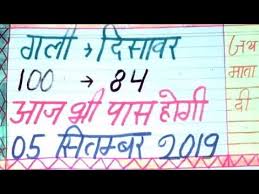 गली → दिसावर
100 → 84
आज भी पास होगी
05 सितम्बर 2019
जय
माता
दी